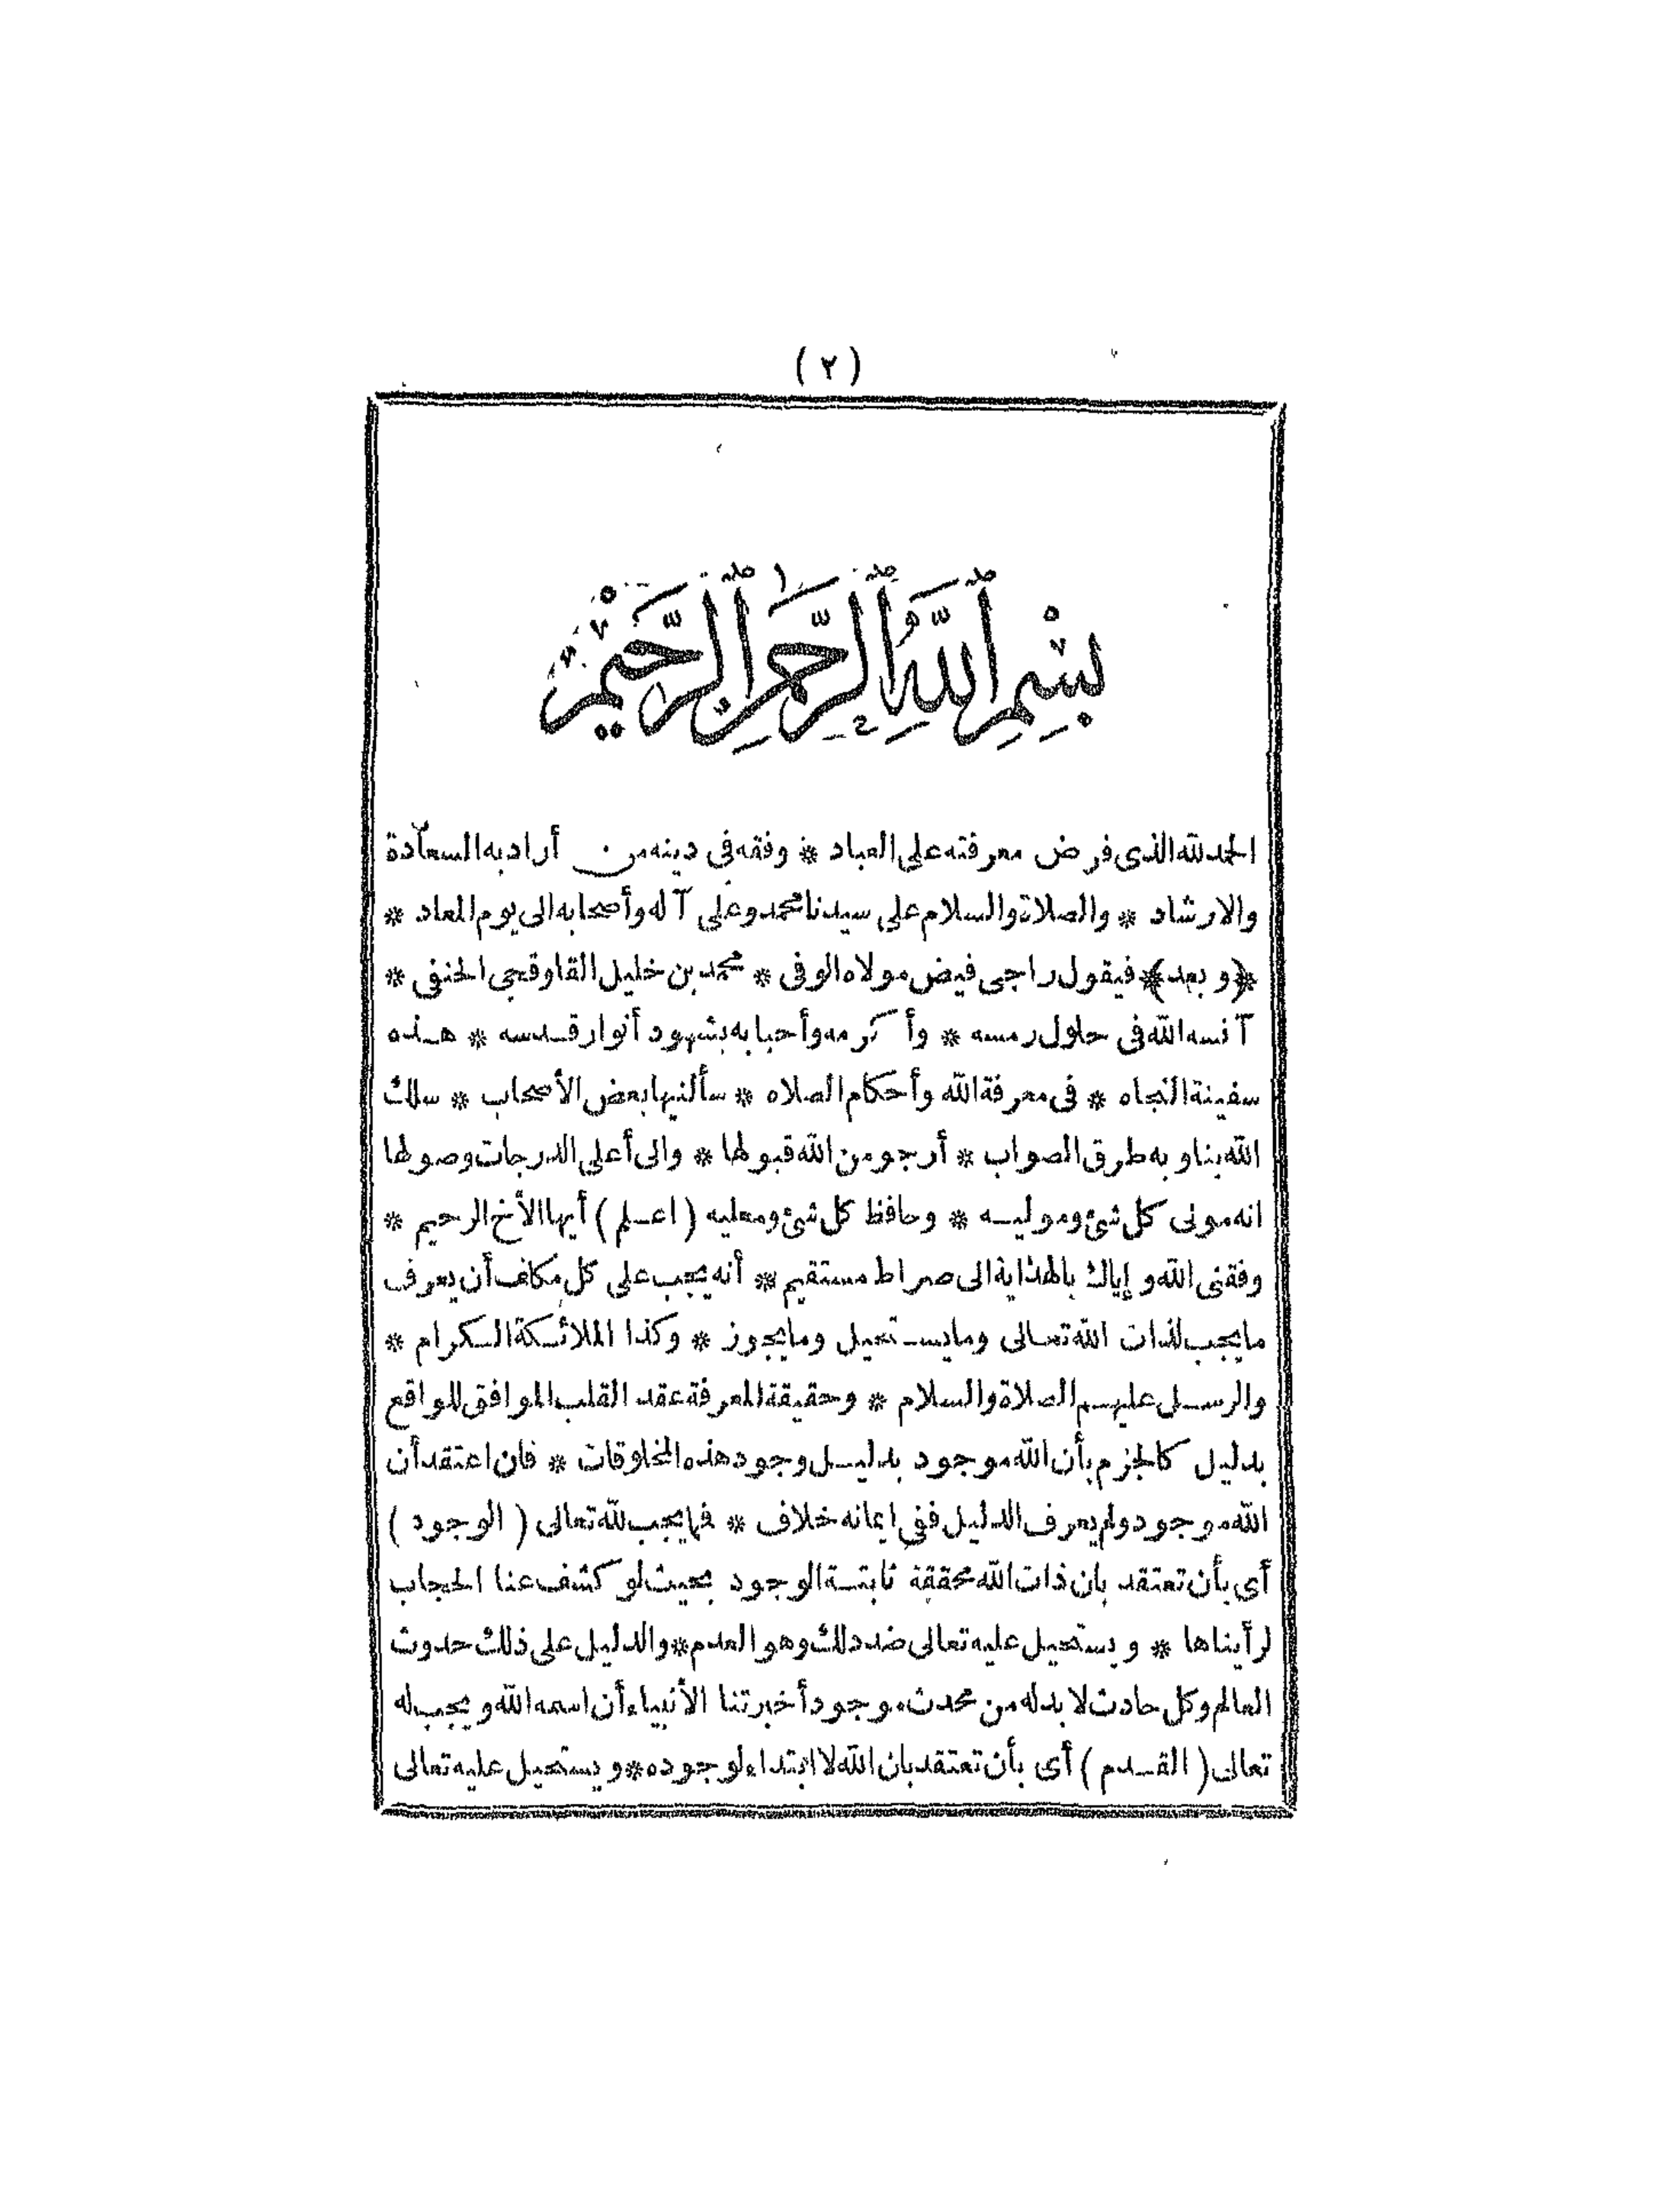 (٢)
بِسْمِ ٱللَّهِ ٱلرَّحْمَٰنِ ٱلرَّحِيمِ
الحمد لله الذى فرض معرفته على العباد * وفقه فى دينه من أراد به السعادة
والارشاد * والصلاة والسلام على سيدنا محمد وعلى آله وأصحابه الى يوم المعاد *
﴿وبعد﴾ فيقول راجى فيض مولاه الوفى * محمد بن خليل القاوقجى الحنفى *
آنسه الله فى حلول رمسه * وأكرمه وأحبابه بشهود أنوار قدسه * هذه
سفينة النجاه * فى معرفة الله وأحكام الصلاه * سألنيها بعض الأصحاب * سلك
الله بنا وبه طرق الصواب * أرجو من الله قبولها * والى أعلى الدرجات وصولها
انه مولى كل شئ وموليه * وحافظ كل شئ ومعليه (اعلم) أيها الأخ الرحيم *
وفقنى الله وإياك بالهداية الى صراط مستقيم * أنه يجب على كل مكلف أن يعرف
ما يجب لذات الله تعالى وما يستحيل وما يجوز * وكذا الملائكة الكرام *
والرسل عليهم الصلاة والسلام * وحقيقة المعرفة عقد القلب الموافق للواقع
بدليل كالجزم بأن الله موجود بدليل وجود هذه المخلوقات * فان اعتقد أن
الله موجود ولم يعرف الدليل ففى ايمانه خلاف * فما يجب لله تعالى (الوجود)
أى بأن تعتقد بان ذات الله محققة ثابتة الوجود بحيث لو كشف عنا الحجاب
لرأيناها * ويستحيل عليه تعالى ضد ذلك وهو العدم * والدليل على ذلك حدوث
العالم وكل حادث لا بد له من محدث موجود أخبرتنا الأنبياء أن اسمه الله ويجب له
تعالى (القدم) أى بأن تعتقد بان الله لا ابتداء لوجوده * ويستحيل عليه تعالى